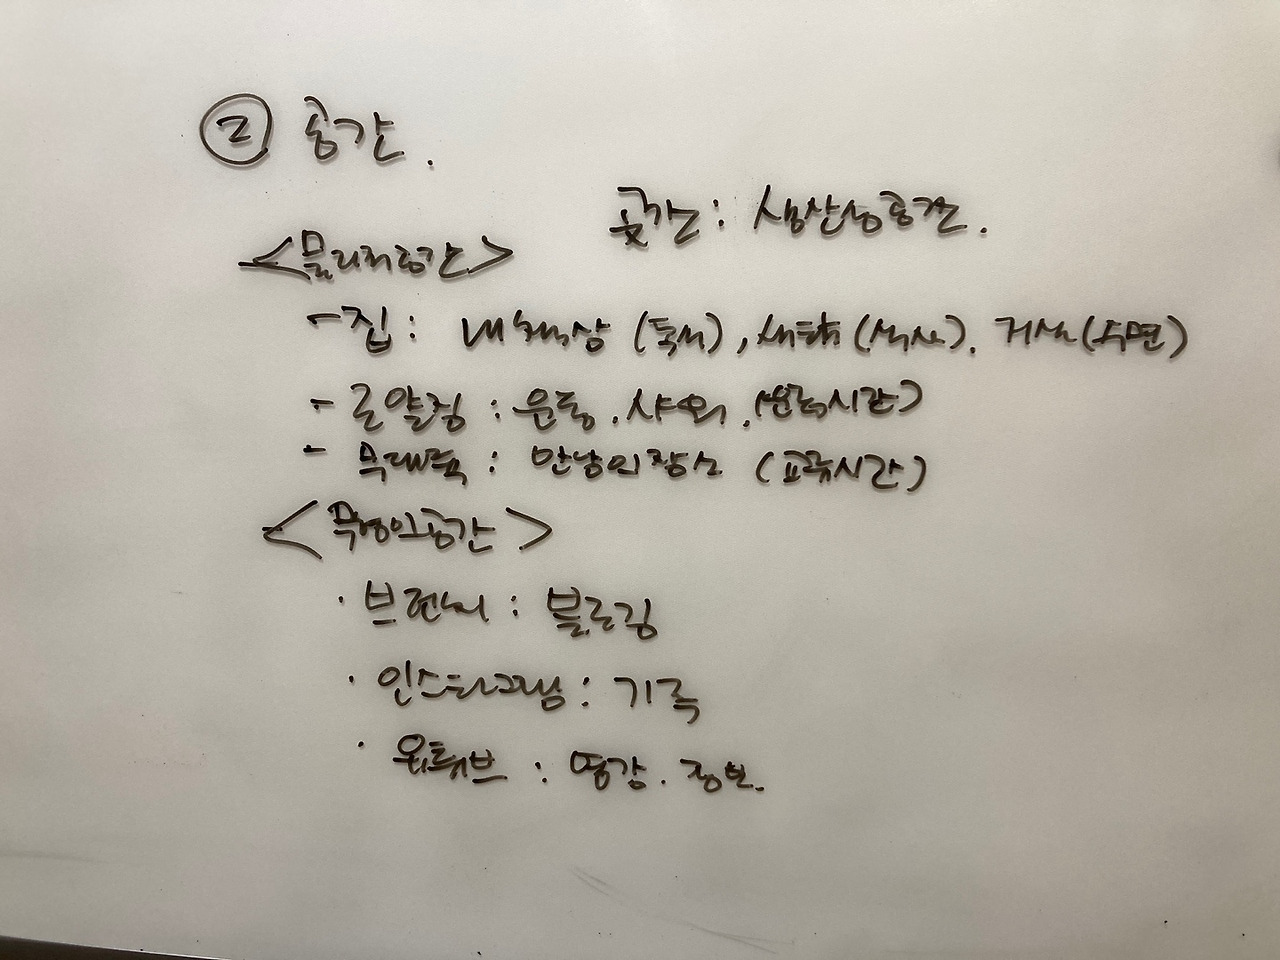 ② 공간.
곳간: 생산성공간.
<물리적공간>
- 집: 내 책상 (독서), 식탁 (식사). 거실 (수면)
- 로얄짐: 운동. 샤워.
- 무대륙: 만남의장소 (교류시간)
<무형의공간>
· 브런치: 블로깅
· 인스타그램: 기록
· 유튜브: 영감. 정보.